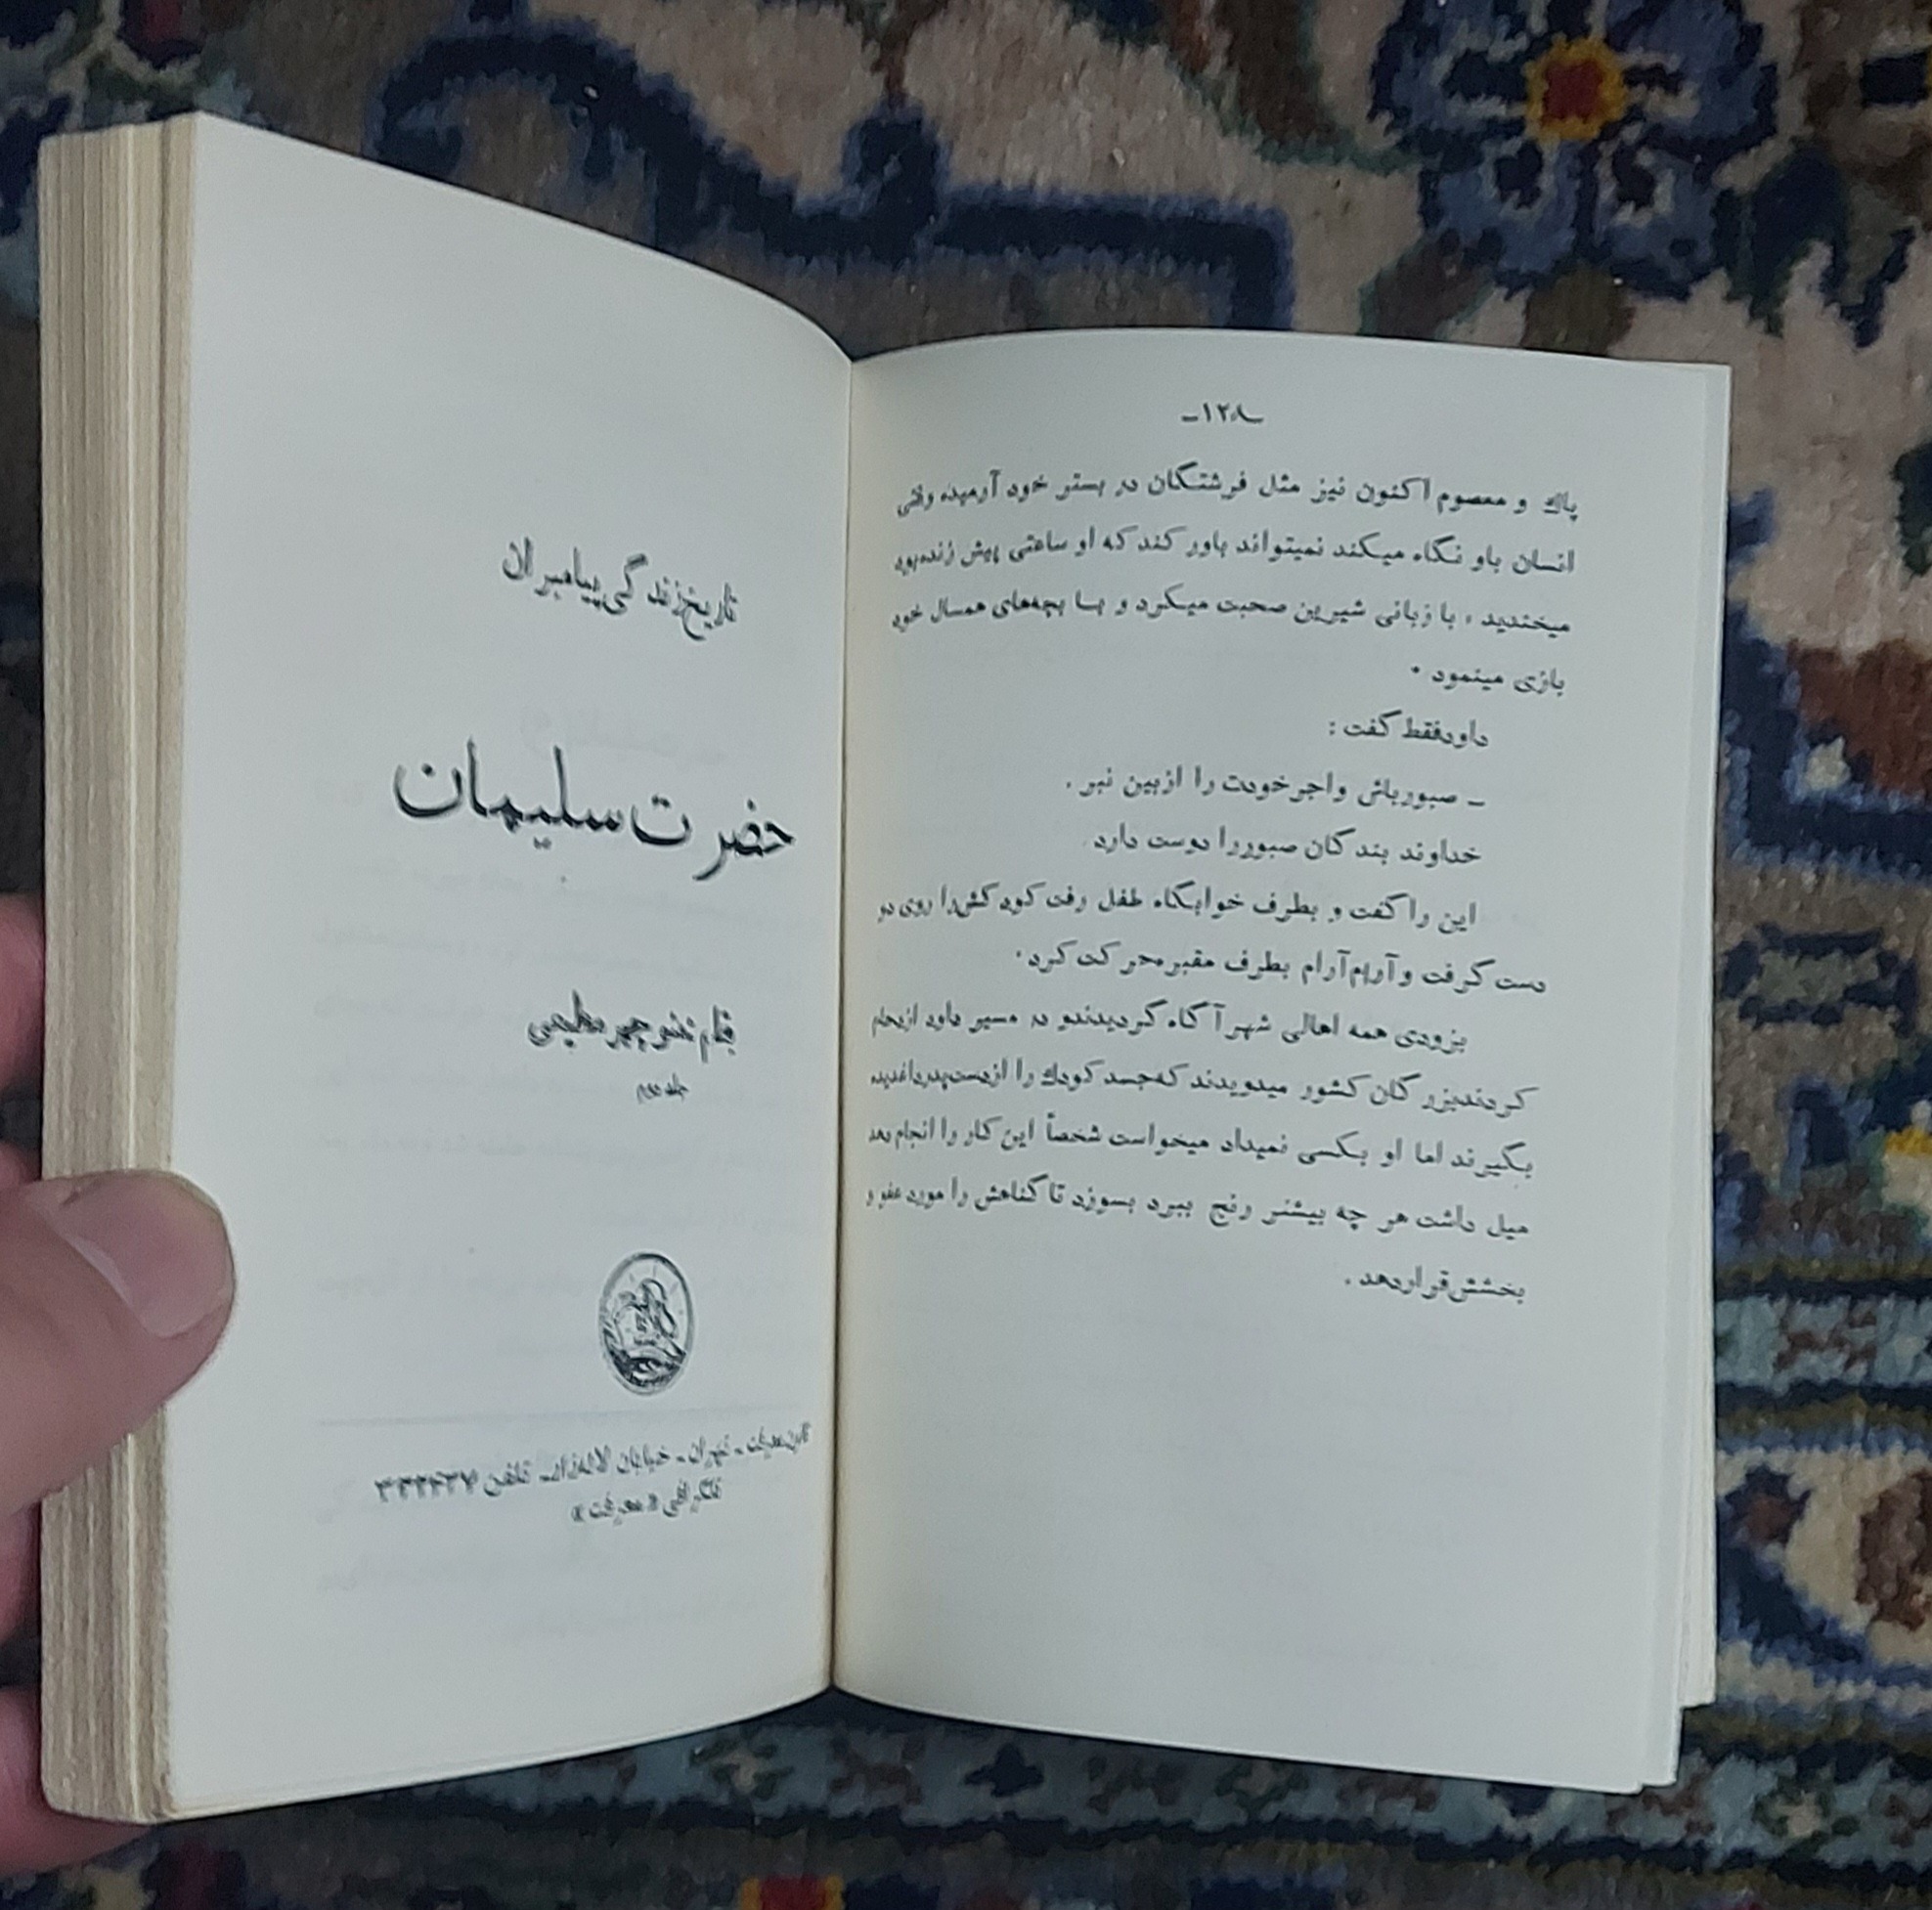 ـ۱۲۸ـ
پاك و معصوم اکنون نیز مثل فرشتگان در بستر خود آرمیده وقتی
انسان باو نگاه میکند نمیتواند باور کند که او ساعتی پیش زنده‌بود
میخندید ، با زبانی شیرین صحبت میکرد و بـا بچه‌های همسال خود
بازی مینمود .
داودفقط گفت :
ـ صبورباش واجرخودت را ازبین نبر .
خداوند بندگان صبوررا دوست دارد
این راگفت و بطرف خوابگاه طفل رفت کودکش‌را روی دو
دست گرفت و آرام‌آرام بطرف مقبره‌حرکت کرد .
بزودی همه اهالی شهر آگاه گردیدندو در مسیر داود ازدحام
کردندبزرگان کشور میدویدند که‌جسد کودك را ازدست‌پدرداغدیده
بگیرند اما او بکسی نمیداد میخواست شخصاً این کار را انجام دهد
میل داشت هر چه بیشتر رنج ببرد بسوزد تا گناهش را مورد عفو و
بخشش‌قراردهد .
تاریخ زندگی پیامبران
حضرت سلیمان
بقلم منوچهر مطیعی
جلد دوم
کانون معرفت ـ تهران ـ خیابان لاله‌زار ـ تلفن ۳۳۲۴۳۷
تلگرافی «معرفت»